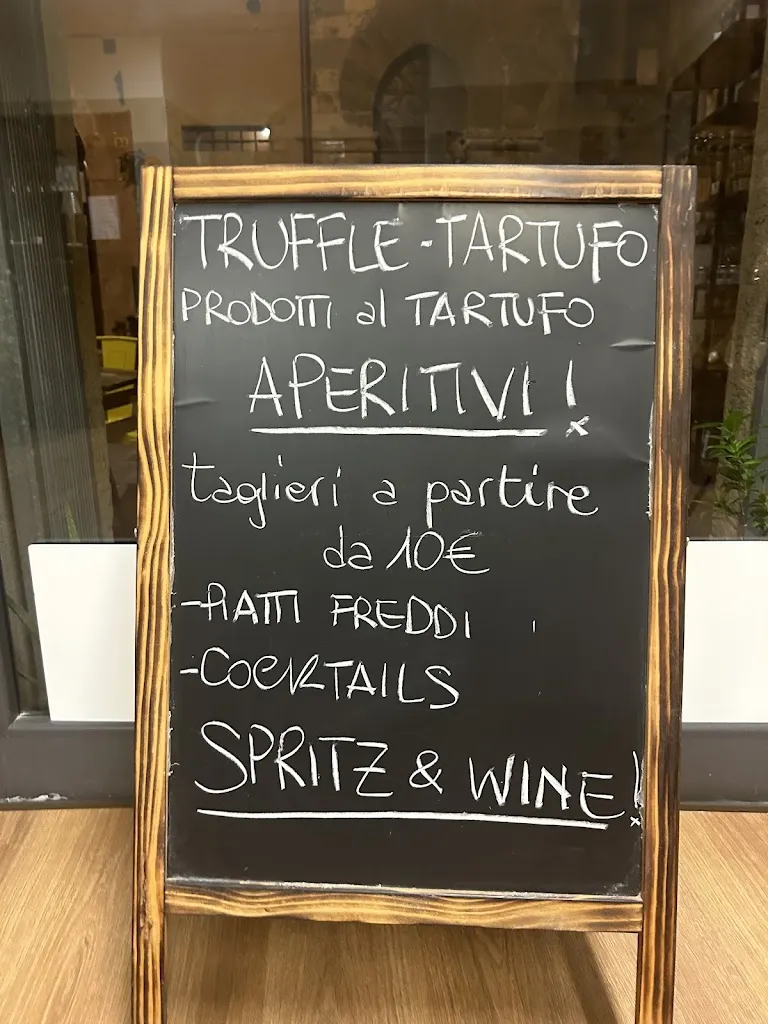 TRUFFLE - TARTUFO
PRODOTTI al TARTUFO
APERITIVI!
taglieri a partire
da 10€
- PIATTI FREDDI
- COCKTAILS
SPRITZ & WINE!